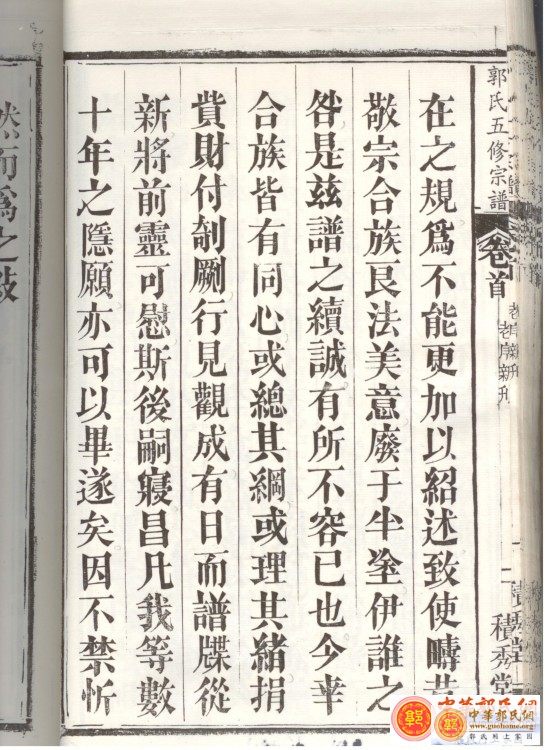 郭氏五修宗譜
卷首
積秀堂
在之規爲不能更加以紹述致使疇昔
敬宗合族良法美意廢于半塗伊誰之
咎是茲譜之續誠有所不容已也今幸
合族皆有同心或總其綱或理其緒捐
貲財付剞劂行見觀成有日而譜牒從
新將前靈可慰斯後嗣寖昌凡我等數
十年之隱願亦可以畢遂矣因不禁忻
然而爲之敍
中華郭氏網
www.guohome.org
郭氏網上家園